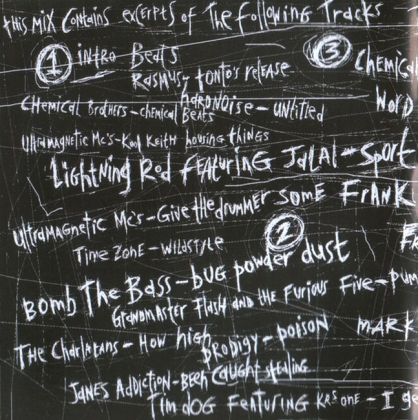 this mix contains excerpts of The following Tracks
1 intro Beats
Rasmus, tonto's release
HARDNOISE - UNtitled
CHEMICAL BROTHERS - chemical BEATS
UltRAMAgNEtic Mc's - Kool Keith housing things
Lightning Rod FEATURING JALAL - Sport
UltRAMAgNEtic Mc's - Give the drummer SOME
TIME ZONE - WildStyle
2
BOMB The BASS - bug powder dust
GRANdMASTER FlASH and the FURIOUS FIVE
The CHARlAtANS - How high
PRODigy - POISON
JANE'S AddictioN - BEEN CAUGHt stealing
Tim dOG FEATURING KRS ONE - I
3 CHEMICAL
WORD
FRANK
MARK